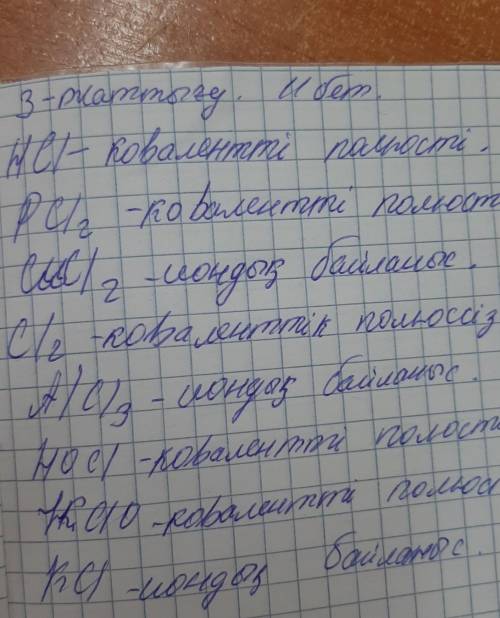 3-жаттығу. 11 бет.
HCl - ковалентті полюсті.
PCl2 - ковалентті полюст
CuCl2 - иондық байланыс.
Cl2 - коваленттік полюссіз
AlCl3 - иондық байланыс.
HOCl - ковалентті полюсті
HClO - ковалентті полюс
KCl - иондық байланыс.